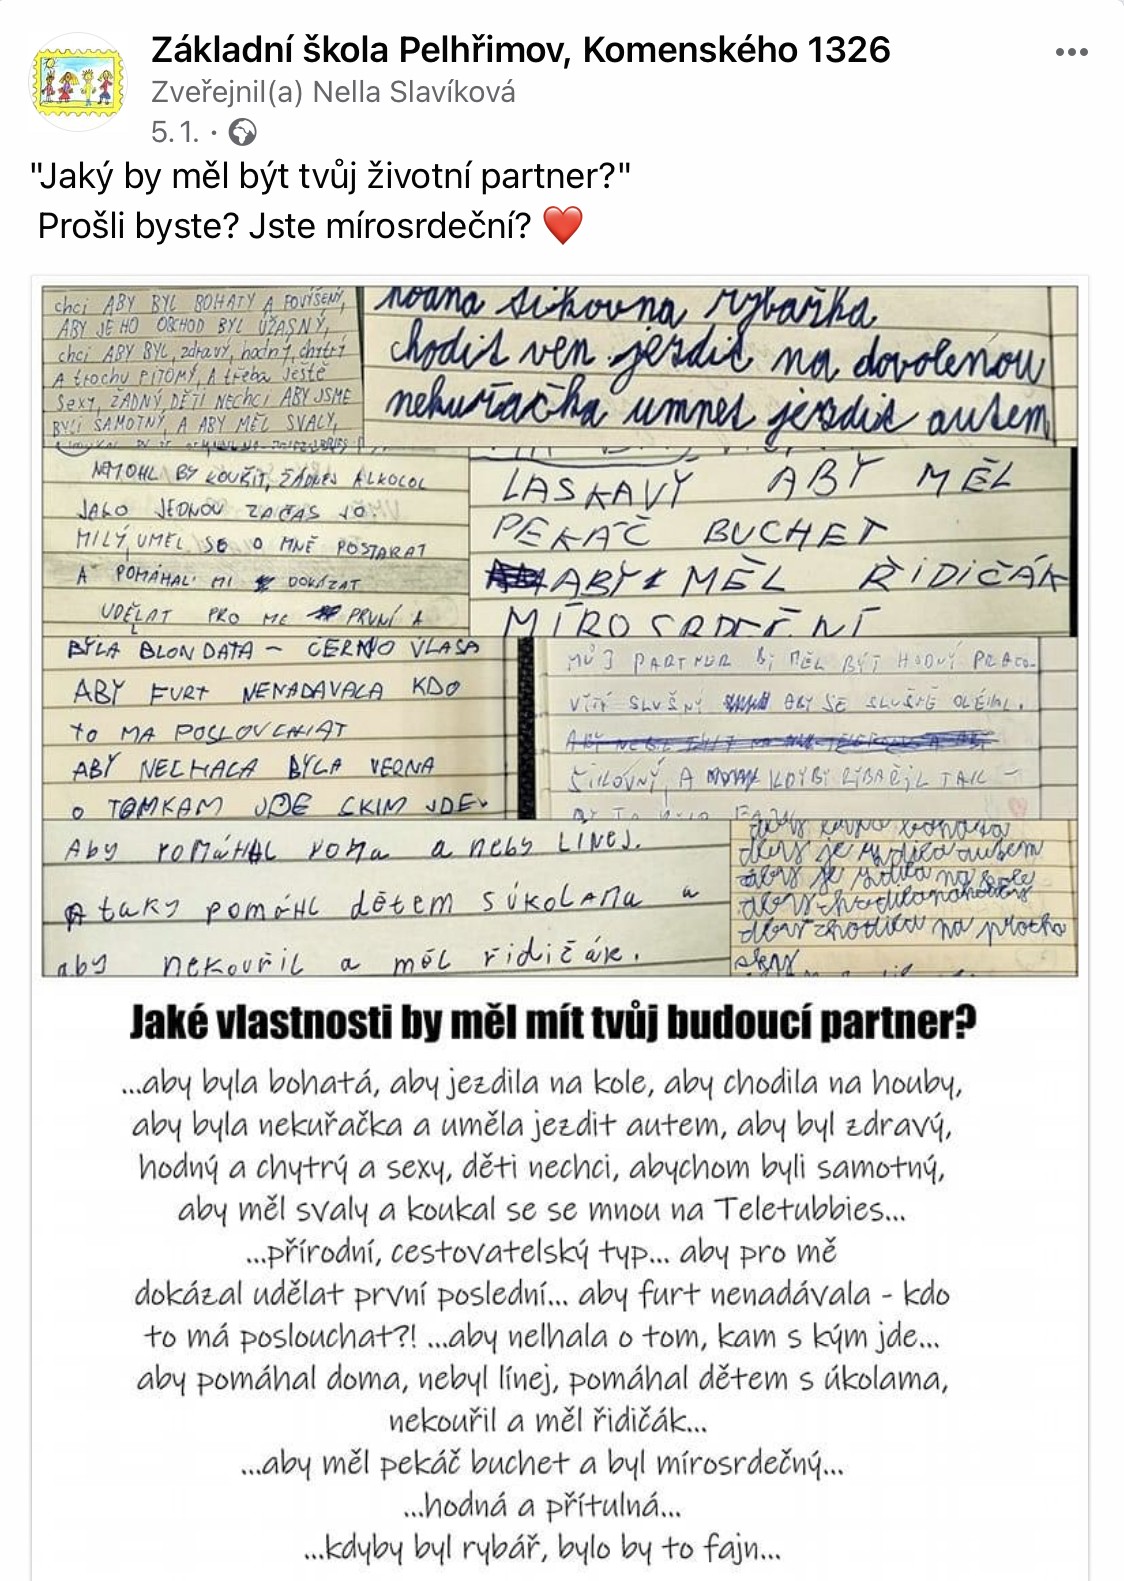 Základní škola Pelhřimov, Komenského 1326
Zveřejnil(a) Nella Slavíková
5. 1.
"Jaký by měl být tvůj životní partner?"
Prošli byste? Jste mírosrdeční? ❤️
chci ABY BYL BOHATY A POVÝŠENÝ,
ABY JEHO OBCHOD BYL ÚŽASNÝ,
chci ABY BYL, zdravý, hodný, chitrí
A trochu PITOMÝ, A třeba Ještě
Sexy, ŽÁDNÝ DĚTI NECHCI ABY JSME
BYLI SAMOTNÝ, A ABY MĚL SVALY,
hodna šikovna rybařka
chodit ven jezdit na dovolenou
nekuřačka umnet jezdit autem
NEMOHL BY KOUŘIT, ŽÁDNEJ ALKOCOL
JAKO JEDNOU ZAČAS JO.
MILÝ, UMĚL SE O MNĚ POSTARAT
A POMÁHAL MI DOKÁZAT
UDĚLAT PRO ME PRVNÍ A
LASKAVÝ ABY MĚL
PEKAČ BUCHET
ABY MĚL ŘIDIČÁK
MÍROSRDEČNÍ
BYLA BLONDATA - ČERNO VLASA
ABY FURT NENADAVALA KDO
to MA POSLOUCHAT
ABY NELHALA BYLA VERNA
O TOMKAM JDE SKIM JDE
MŮJ PARTNER BI MĚL BÝT HODNÝ PRACO-
VITÝ SLUŠNÝ ABY SE SLUŠNĚ OLÉKAL.
ŠIKOVNÝ, A KDYBY RIBAŘIL TAK -
Aby POMÁHAL DOMA a neby LÍNEJ.
A taky pomáhl dětem s úkolama a
aby nekouřil a měl řidičák.
aby je jezdila autem
aby je jezdila na kole
aby chodila na houby
aby chodila na procha
sky
Jaké vlastnosti by měl mít tvůj budoucí partner?
...aby byla bohatá, aby jezdila na kole, aby chodila na houby,
aby byla nekuřačka a uměla jezdit autem, aby byl zdravý,
hodný a chytrý a sexy, děti nechci, abychom byli samotný,
aby měl svaly a koukal se se mnou na Teletubbies...
...přírodní, cestovatelský typ... aby pro mě
dokázal udělat první poslední... aby furt nenadávala - kdo
to má poslouchat?! ...aby nelhala o tom, kam s kým jde...
aby pomáhal doma, nebyl línej, pomáhal dětem s úkolama,
nekouřil a měl řidičák...
...aby měl pekáč buchet a byl mírosrdečný...
...hodná a přítulná...
...kdyby byl rybář, bylo by to fajn...